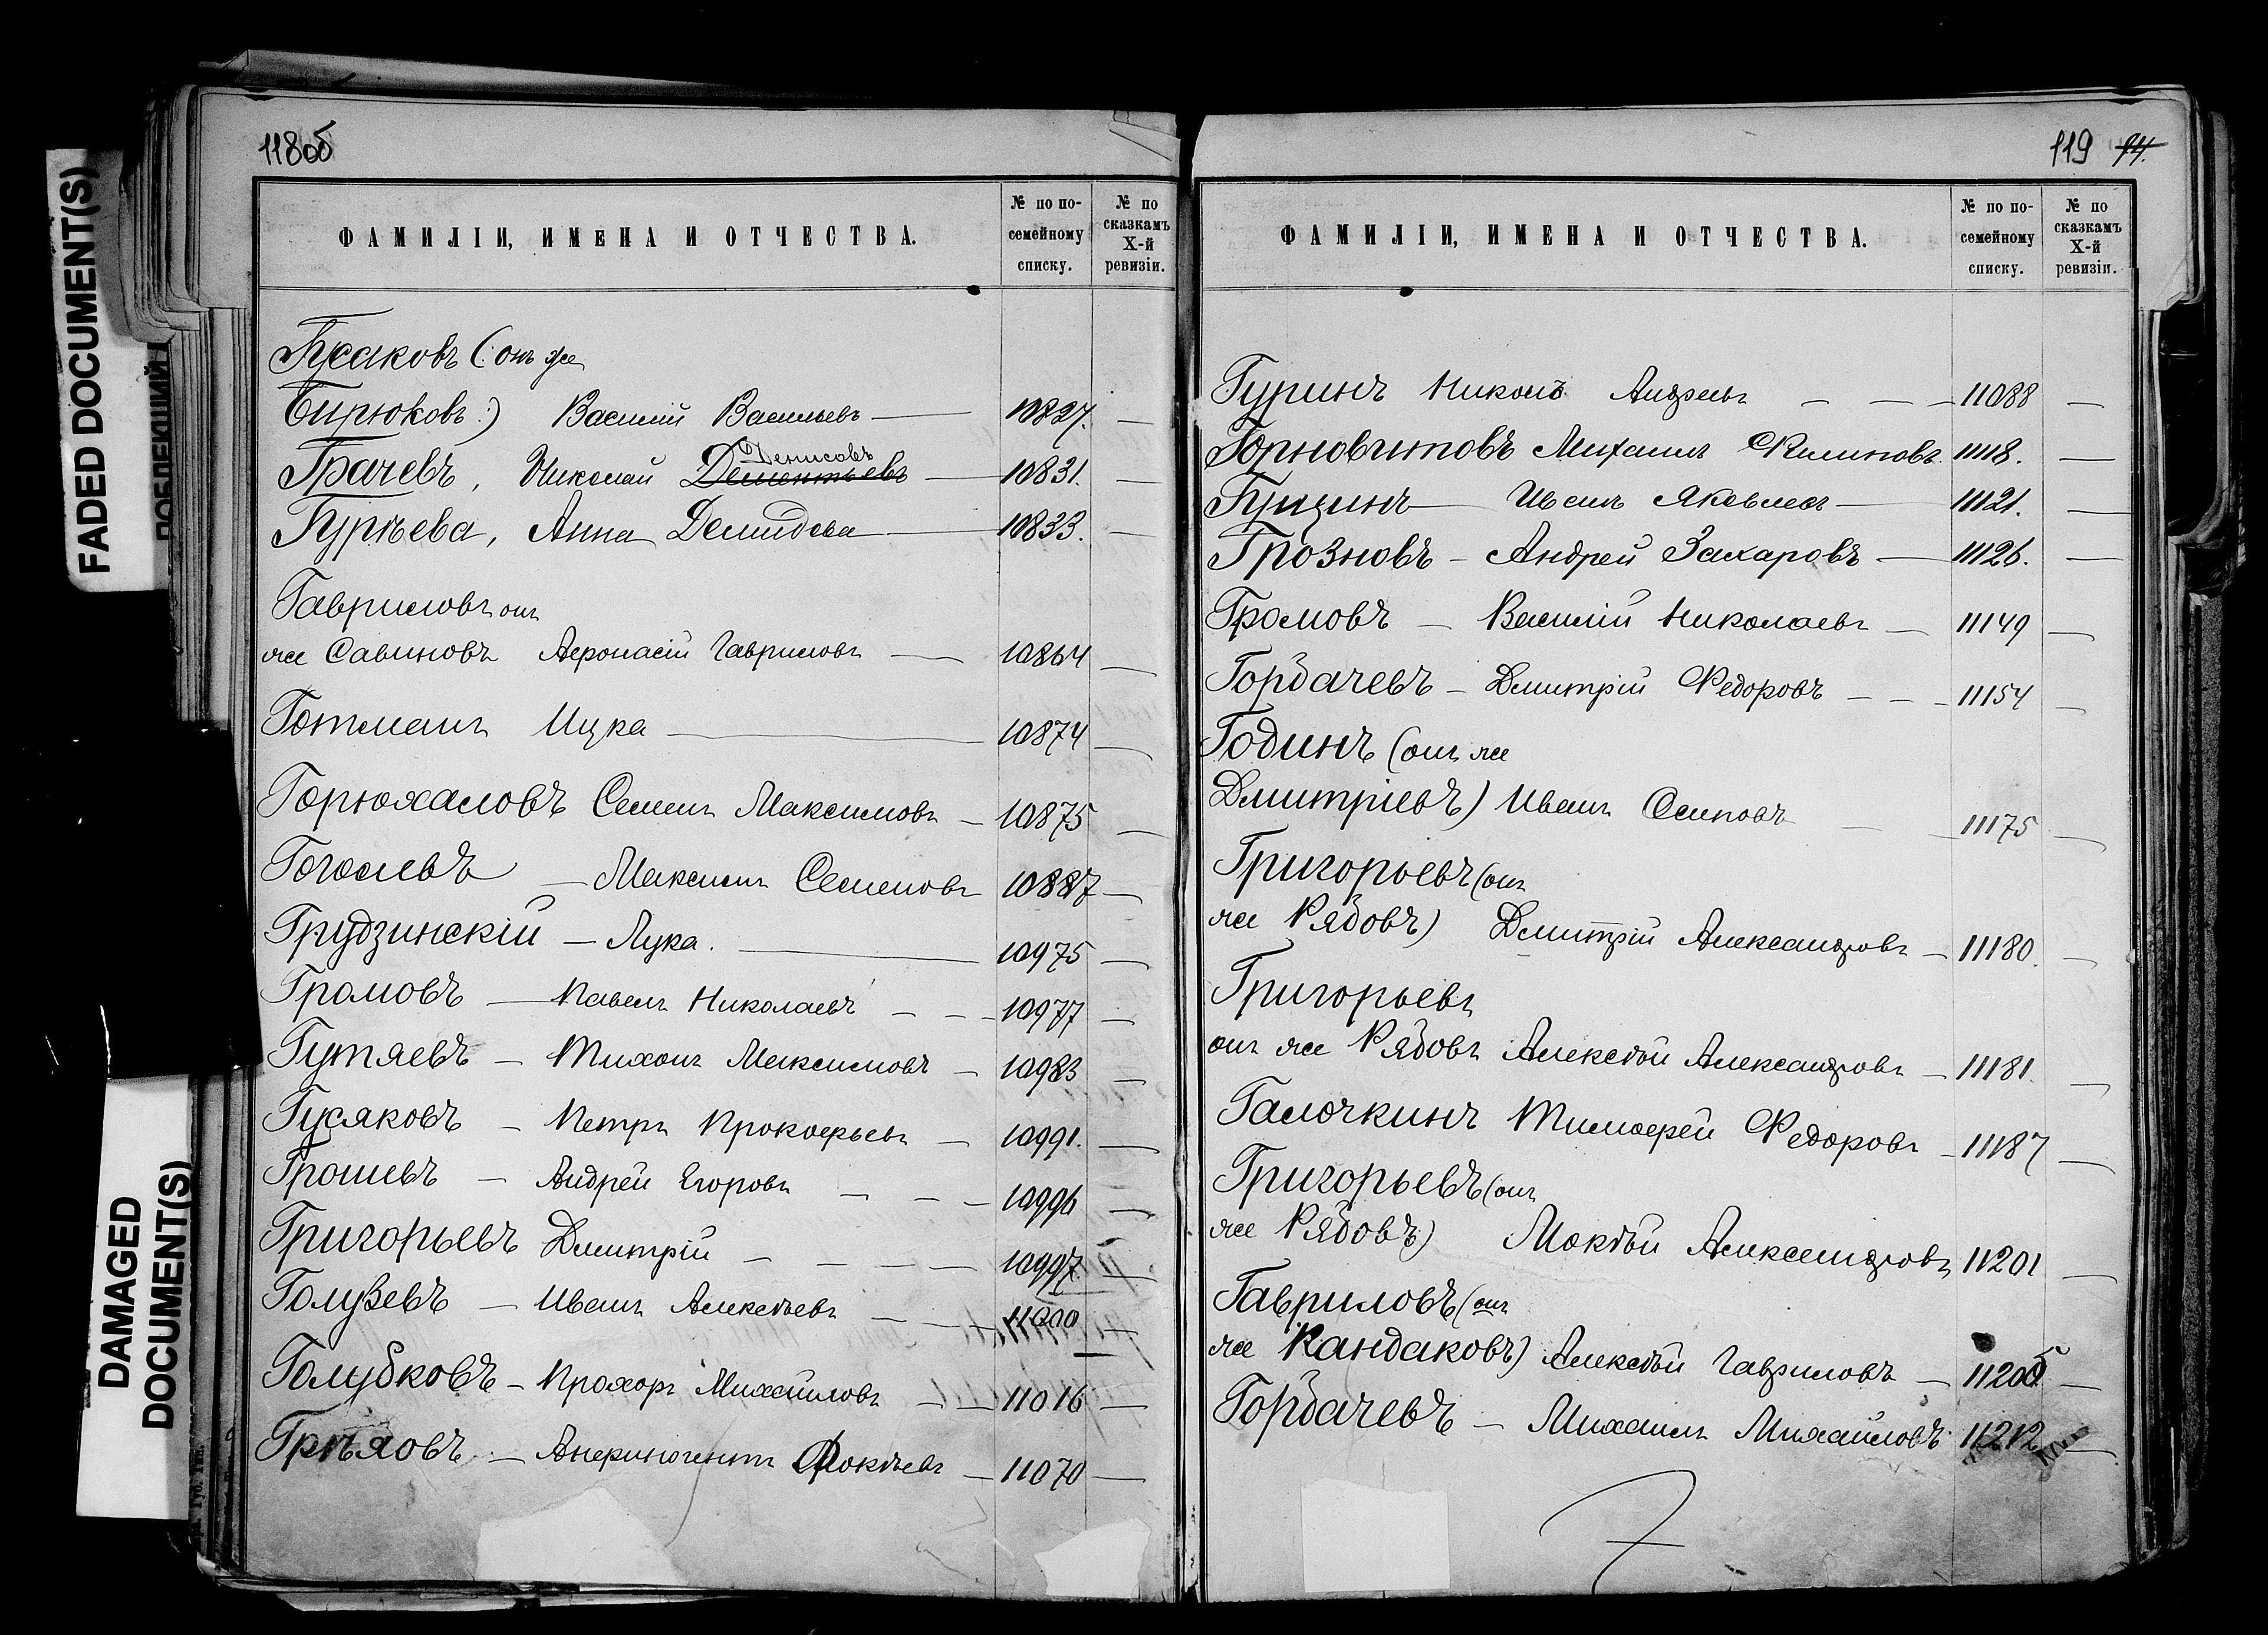 FADED DOCUMENT(S)
DAMAGED
DOCUMENT(S)
118об
ФАМИЛІИ, ИМЕНА И ОТЧЕСТВА.
№ по по-
семейному
списку.
№ по
сказкамъ
X-й
ревизіи.
Гусаковъ (: онъ же
Бирюковъ :) Василій Васильевъ — 10827. —
Денисовъ
Грачевъ, Николай Дементьевъ — 10831. —
Гурѣева, Анна Демидова — 10833. —
Гавриловъ онъ
же Савиновъ Аѳонасій Гавриловъ — 10864 —
Готманъ Ицка — 10874 —
Горюхаловъ Семенъ Максимовъ — 10875 —
Гоголевъ — Максимъ Семеновъ 10887 —
Грудзинскій — Лука. — 10975 —
Громовъ — Павелъ Николаевъ — — 10977 —
Гутяевъ — Тихонъ Максимовъ — 10983 —
Гусяковъ — Петръ Прокофьевъ — 10991. —
Грошевъ — Андрей Егоровъ — — — 10996 —
Григорьевъ Дмитрій — — — — 10997. —
Голузевъ — Иванъ Алексѣевъ — — — 11000 —
Голубковъ — Прохоръ Михайловъ — — 11016 —
Грѣховъ — Анфиногентъ Фокѣевъ — 11070 —
119 94.
ФАМИЛІИ, ИМЕНА И ОТЧЕСТВА.
№ по по-
семейному
списку.
№ по
сказкамъ
X-й
ревизіи.
Гуринъ Никонъ Андреевъ — — — 11088 —
Михаилъ Филиповъ 11118. —
Гущинъ — Иванъ Яковлевъ — 11121. —
Грозновъ — Андрей Захаровъ — 11126. —
Громовъ — Василій Николаевъ — 11149 —
Горбачевъ — Дмитрій Федоровъ — — — 11154 —
Годинъ (онъ же
Дмитріевъ) Иванъ Осиповъ — — 11175 —
Григорьевъ (онъ
же Рябовъ) Дмитрій Александровъ — 11180. —
Григорьевъ
онъ же Рябовъ Алексѣй Александровъ — 11181. —
Галочкинъ Тимофей Федоровъ — 11187 —
Григорьевъ (онъ
же Рябовъ) Мокѣй Александровъ 11201 —
Гавриловъ (онъ
же Кандаковъ) Алексѣй Гавриловъ — 11205 —
Горбачевъ — Михаилъ Михайловъ 11212 —